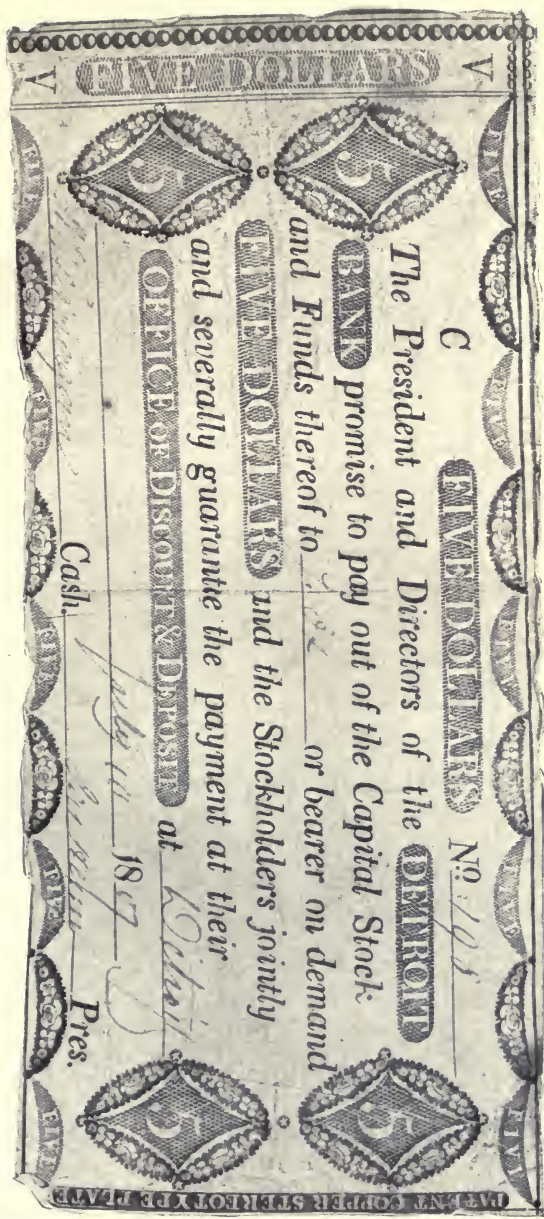 V FIVE DOLLARS V
FIVE FIVE FIVE FIVE FIVE
C FIVE DOLLARS No.
The President and Directors of the DETROIT
BANK promise to pay out of the Capital Stock
and Funds thereof to or bearer on demand
FIVE DOLLARS and the Stockholders jointly
and severally guarantie the payment at their
OFFICE OF DISCOUNT & DEPOSIT at Detroit
180
Cash. Pres.
5 5
5 5
FIVE FIVE FIVE FIVE FIVE
PATENT COPPER STEREOTYPE PLATE